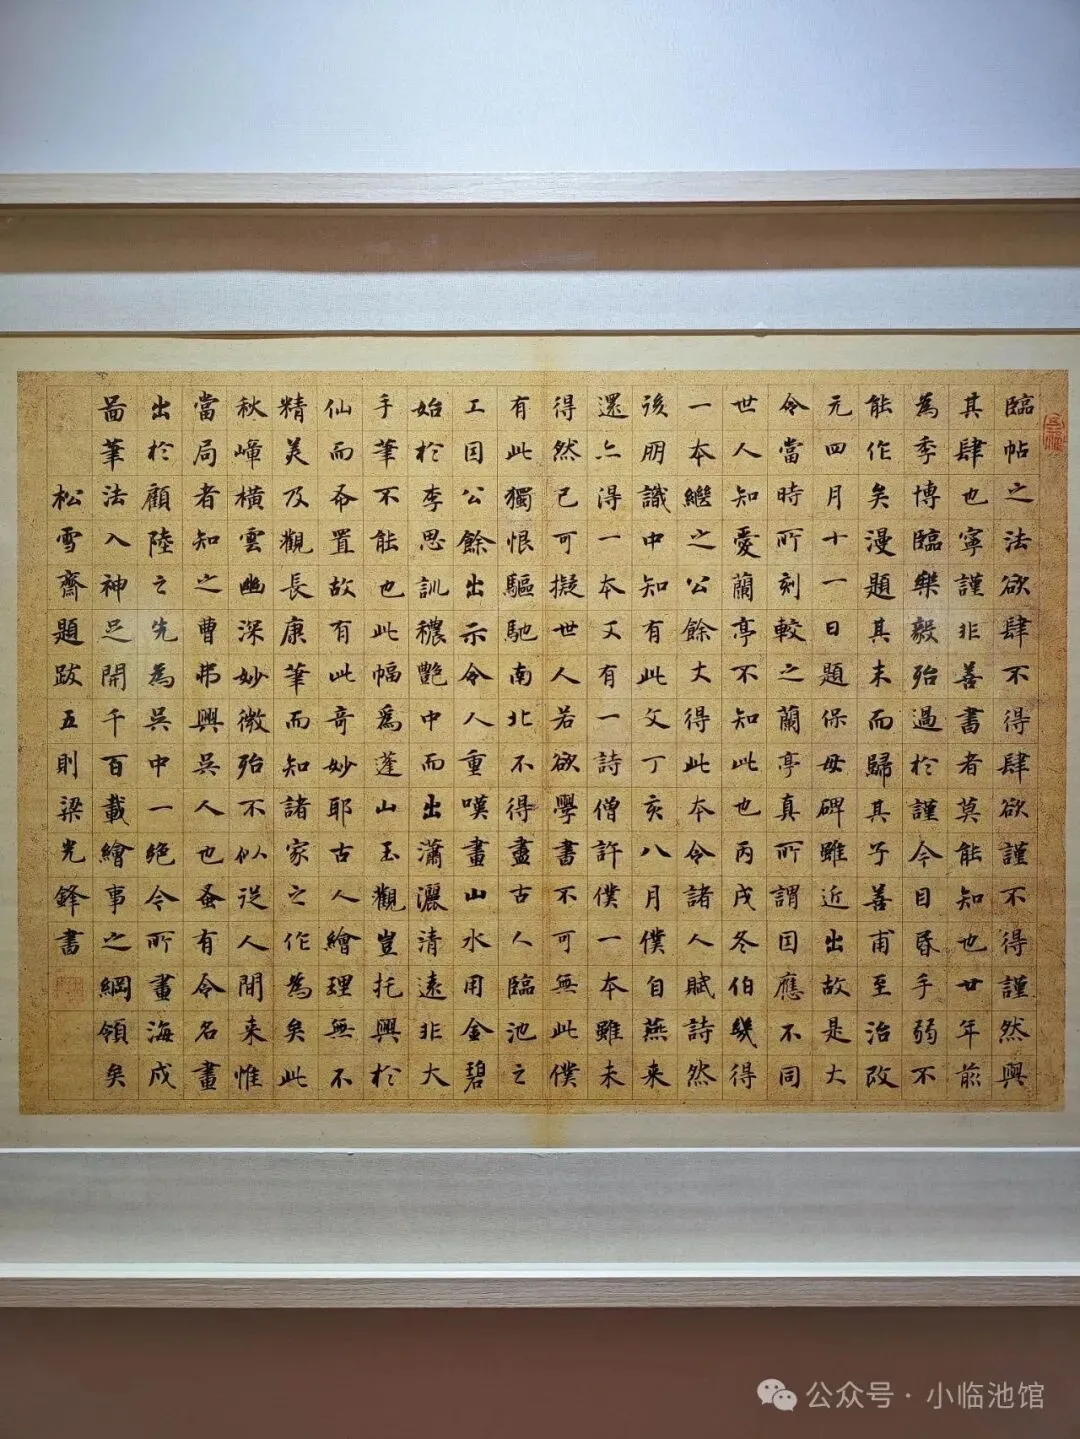 臨帖之法欲肆不得肆欲謹不得謹然興
其肆也寧謹非善書者莫能知也廿年前
為季博臨樂毅殆過於謹今目昏手弱不
能作矣漫題其末而歸其子善甫至治改
元四月十一日題保母碑雖近出故是大
令當時所刻較之蘭亭真所謂因應不同
世人知愛蘭亭不知此也丙戌冬伯幾得
一本繼之公餘丈得此本令諸人賦詩然
後朋識中知有此文丁亥八月僕自燕来
還亦得一本又有一詩僧許僕一本雖未
得然已可擬世人若欲學書不可無此僕
有此獨恨驅馳南北不得盡古人臨池之
工因公餘出示令人重嘆畫山水用金碧
始於李思訓穠艷中而出瀟灑清遠非大
手筆不能也此幅爲蓬山玉觀豈托興於
仙而命置故有此奇妙耶古人繪理無不
精美及觀長康筆而知諸家之作為矣此
秋嶂橫雲幽深妙微殆不似從人間来惟
當局者知之曹弗興吳人也蚤有令名畫
出於顧陸之先為吳中一絕令所畫海戍
啚筆法入神足開千百載繪事之綱領矣
松雪齋題跋五則梁光鋒書
公众号·小临池馆